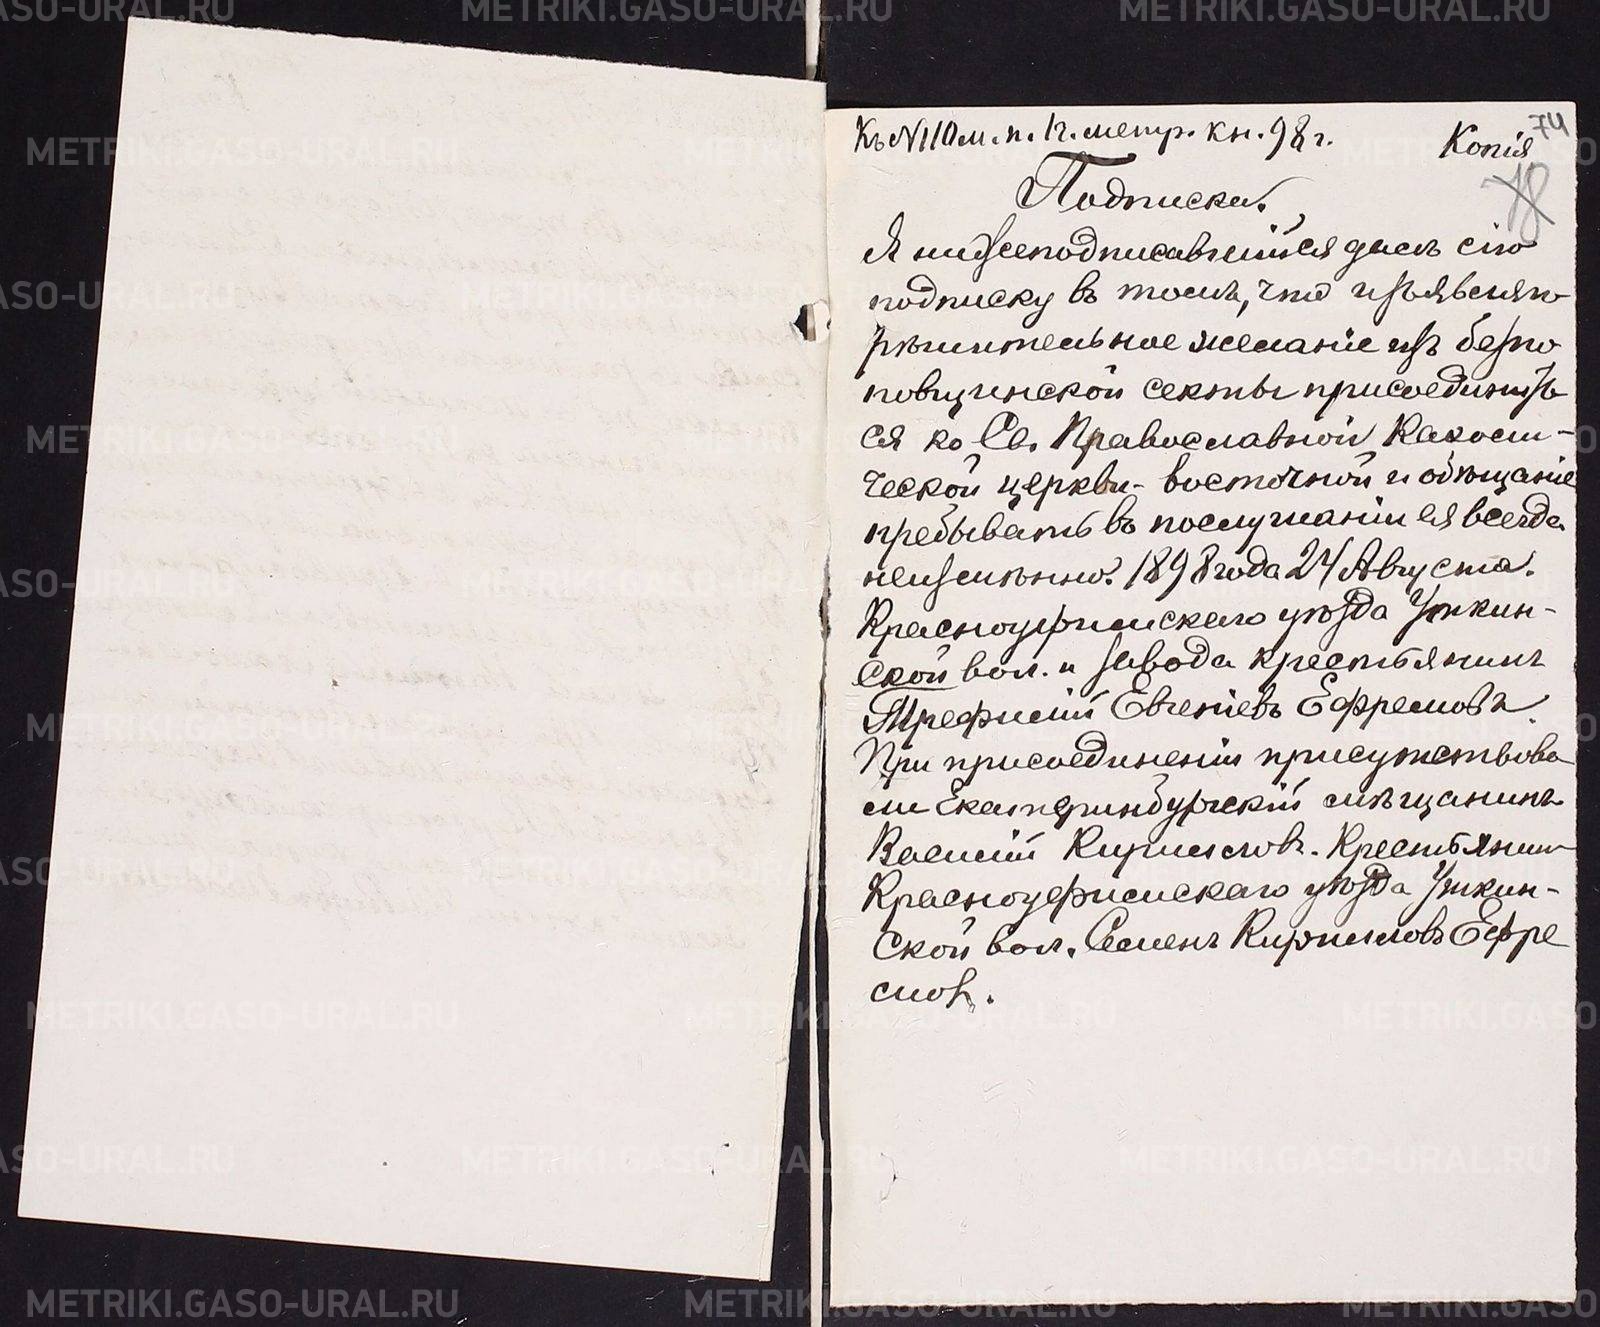 Къ №110 м. п. 1 ч. метр. кн. 98 г.
Копія
74
78
Подписка.
Я нижеподписавшійся далъ сію
подписку въ томъ, что изъявляю
рѣшительное желаніе изъ безпо
повщинской секты присоединить
ся ко Св. Православной Каѳоли-
ческой церкви-восточной и обѣщаніе
пребывать въ послушаніи ея всегда
неизмѣнно. 1898 года 24 Августа.
Красноуфимскаго уѣзда Уткин-
ской вол. и завода крестьянинъ
Трефилій Евгеніевъ Ефремовъ.
При присоединеніи присутствова
ли Екатеринбургскій мѣщанинъ
Василій Кирилловъ. Крестьянин
Красноуфимскаго уѣзда Уткин-
ской вол. Семенъ Кирилловъ Ефре
мовъ.
METRIKI.GASO-URAL.RU